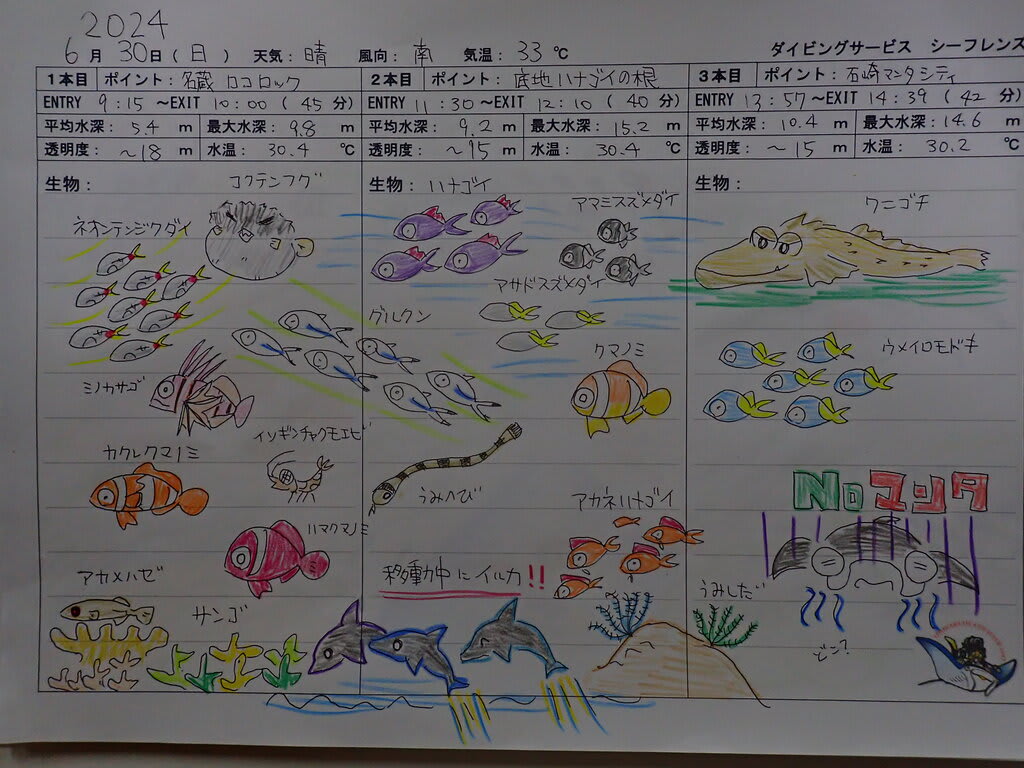 2024
6月30日(日) 天気：晴 風向：南 気温：33℃ ダイビングサービス シーフレンズ
1本目 ポイント：名蔵 ロコロック
ENTRY 9：15 ～EXIT 10：00 (45分)
平均水深： 5.4 m 最大水深： 9.8 m
透明度： ～18 m 水温： 30.4 ℃
生物：
コクテンフグ
ネオンテンジクダイ
ミノカサゴ
イソギンチャクモエビ
カクレクマノミ
ハマクマノミ
アカメハゼ
サンゴ
2本目 ポイント：底地ハナゴイの根
ENTRY 11：30 ～EXIT 12：10 (40分)
平均水深： 9.2 m 最大水深： 15.2 m
透明度： ～15 m 水温： 30.4 ℃
生物：
ハナゴイ
アマミスズメダイ
アサドスズメダイ
グルクン
クマノミ
うみへび
アカネハナゴイ
移動中にイルカ!!
3本目 ポイント：石崎マンタシティ
ENTRY 13：57 ～EXIT 14：39 (42分)
平均水深： 10.4 m 最大水深： 14.6 m
透明度： ～15 m 水温： 30.2 ℃
生物：
ワニゴチ
ウメイロモドキ
Noマンタ
うみしだ
どこ?